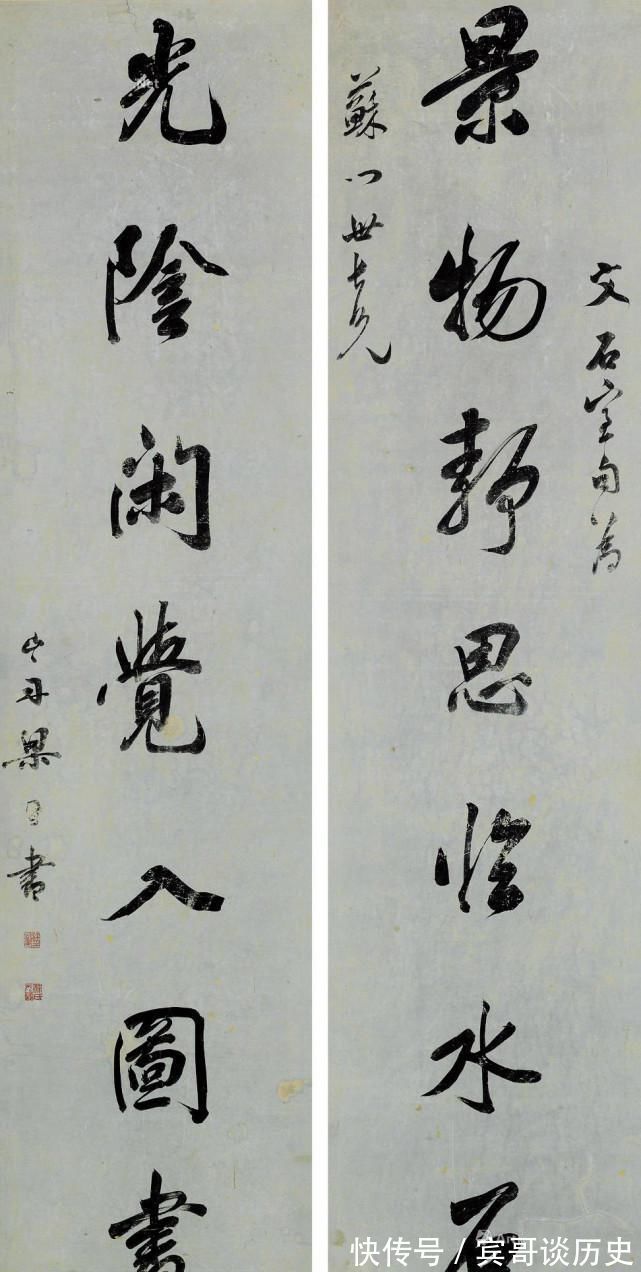 文石室句
景物靜思臨水石
蘇門世長兄
光陰閑覺入圖書
山舟梁同書
快传号 / 宾哥谈历史